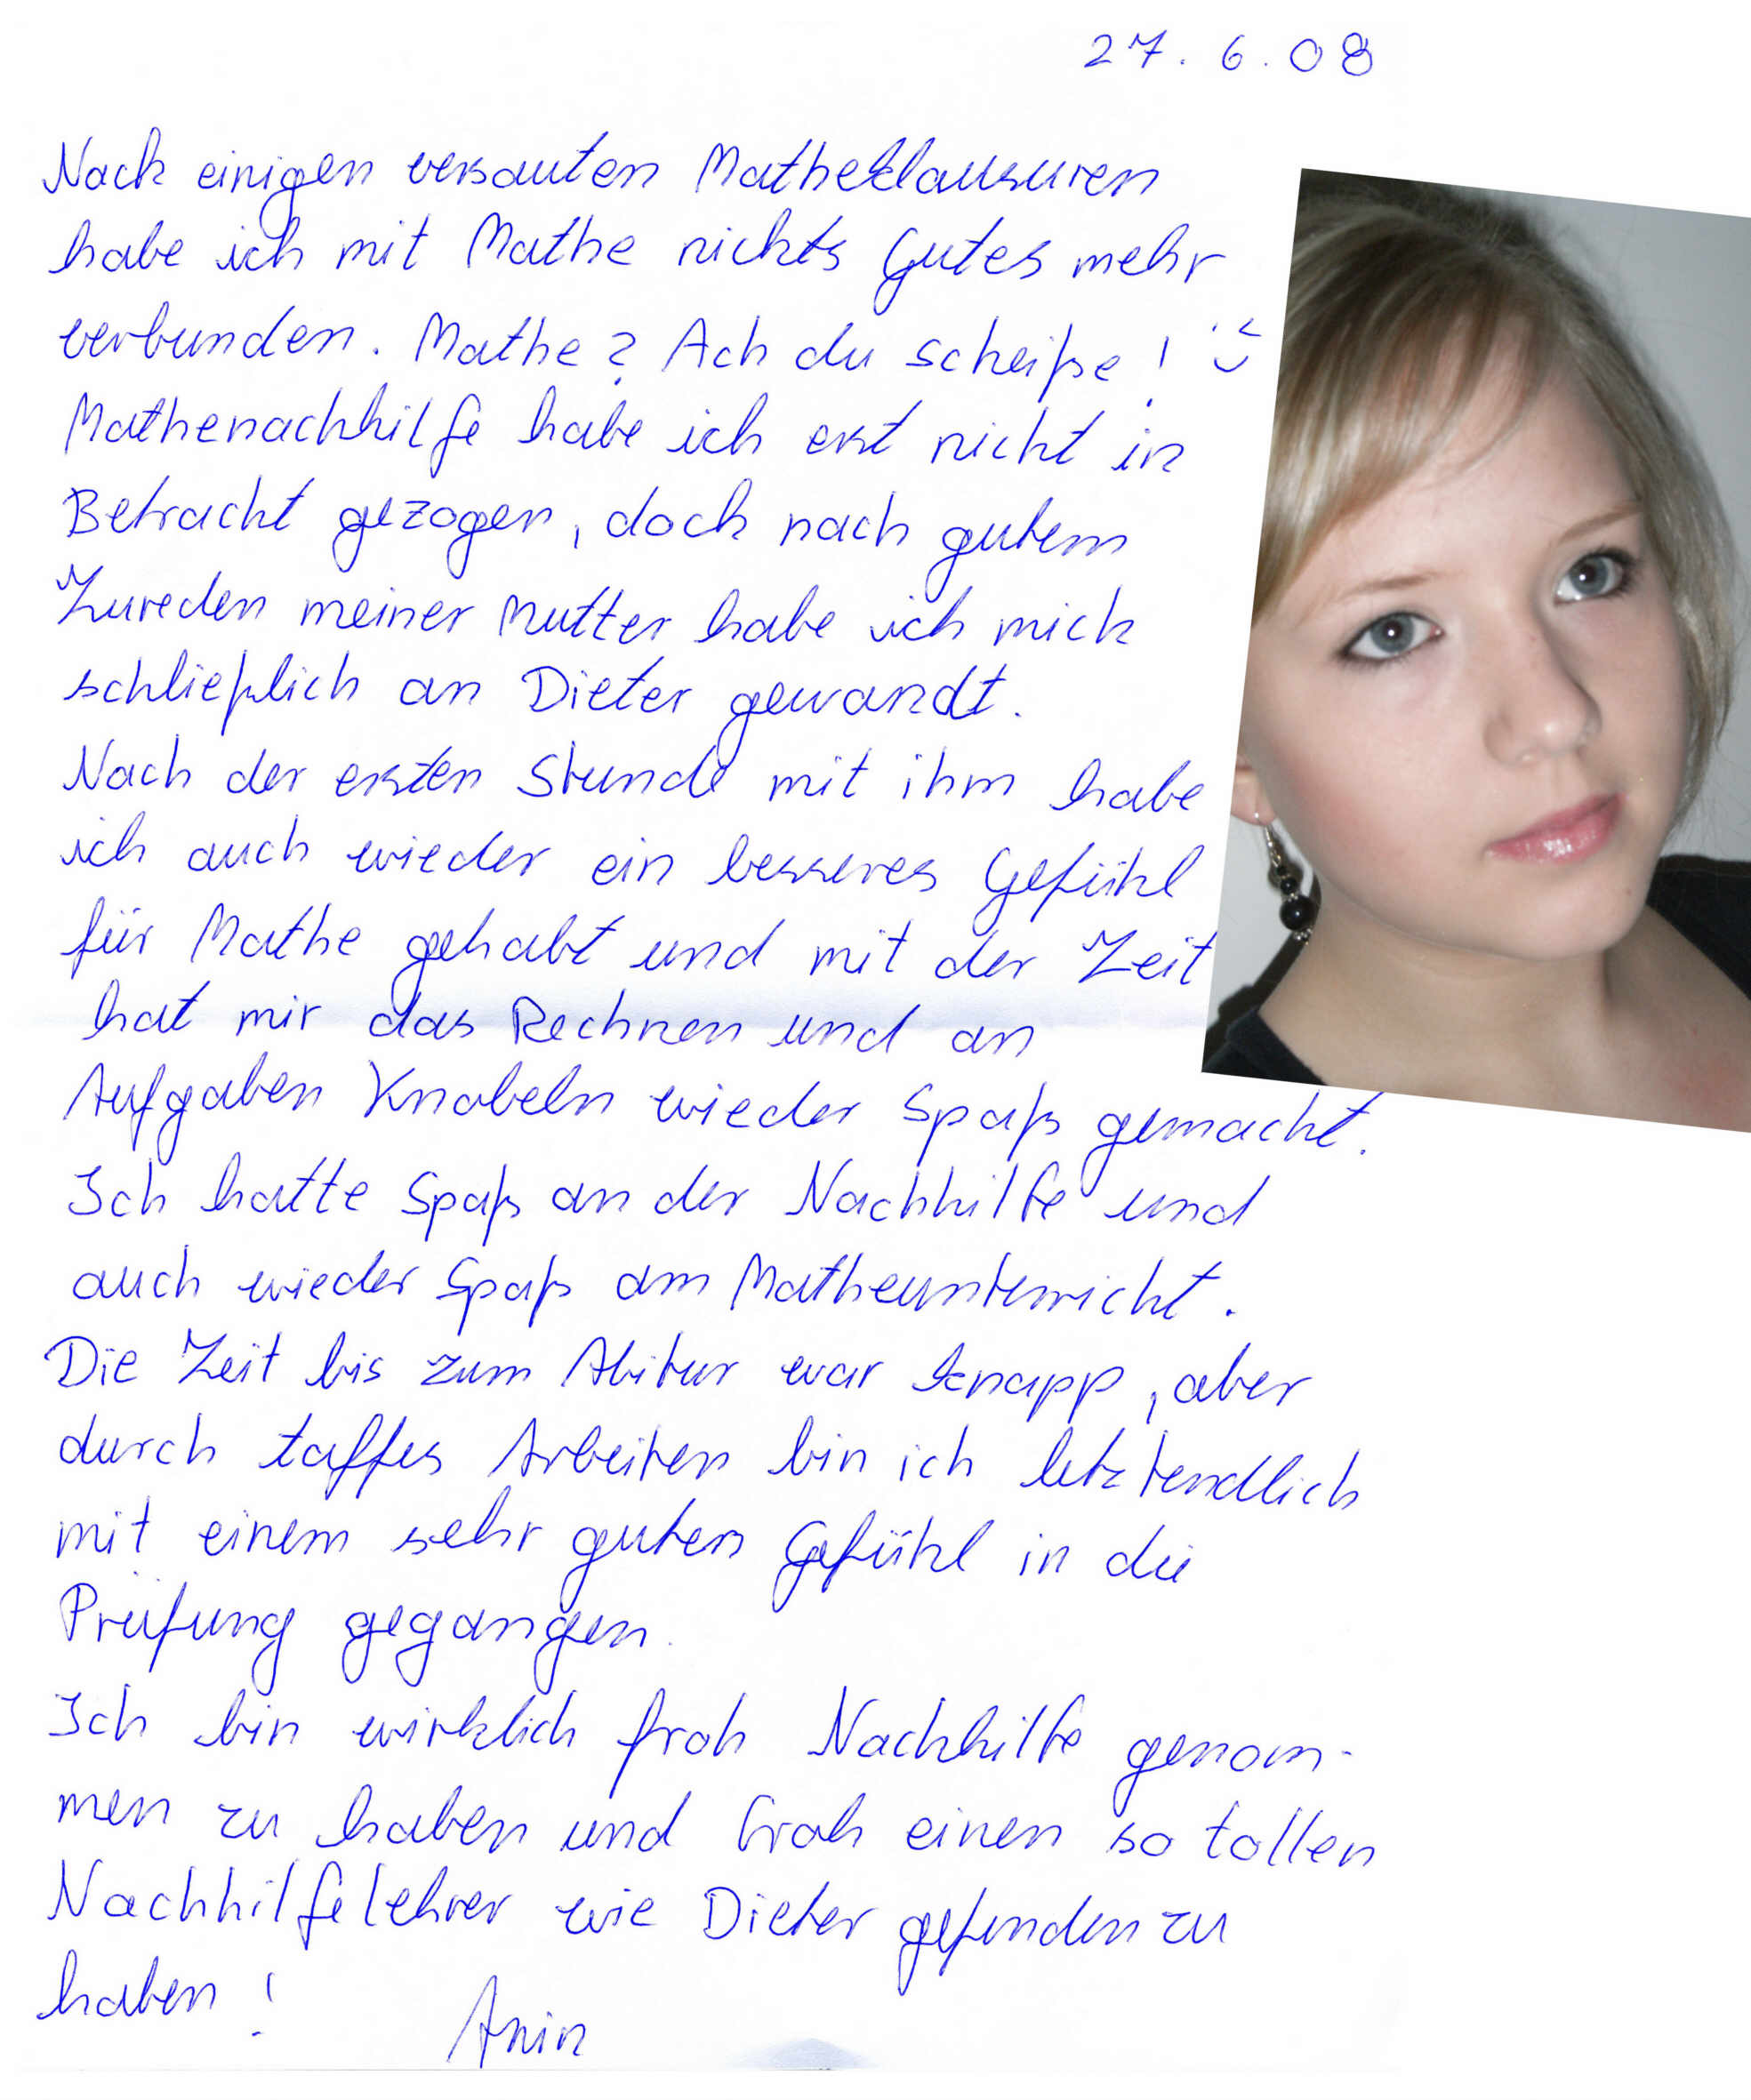 27.6.08
Nach einigen versauten Matheklausuren
habe ich mit Mathe nichts Gutes mehr
verbunden. Mathe? Ach du scheiße! :)
Mathenachhilfe habe ich erst nicht in
Betracht gezogen, doch nach gutem
Zureden meiner Mutter habe ich mich
schließlich an Dieter gewandt.
Nach der ersten Stunde mit ihm habe
ich auch wieder ein besseres Gefühl
für Mathe gehabt und mit der Zeit
hat mir das Rechnen und an
Aufgaben Knobeln wieder Spaß gemacht.
Ich hatte Spaß an der Nachhilfe und
auch wieder Spaß am Matheunterricht.
Die Zeit bis zum Abitur war knapp, aber
durch taffes Arbeiten bin ich letztendlich
mit einem sehr guten Gefühl in die
Prüfung gegangen.
Ich bin wirklich froh Nachhilfe genom-
men zu haben und froh einen so tollen
Nachhilfelehrer wie Dieter gefunden zu
haben! Anin